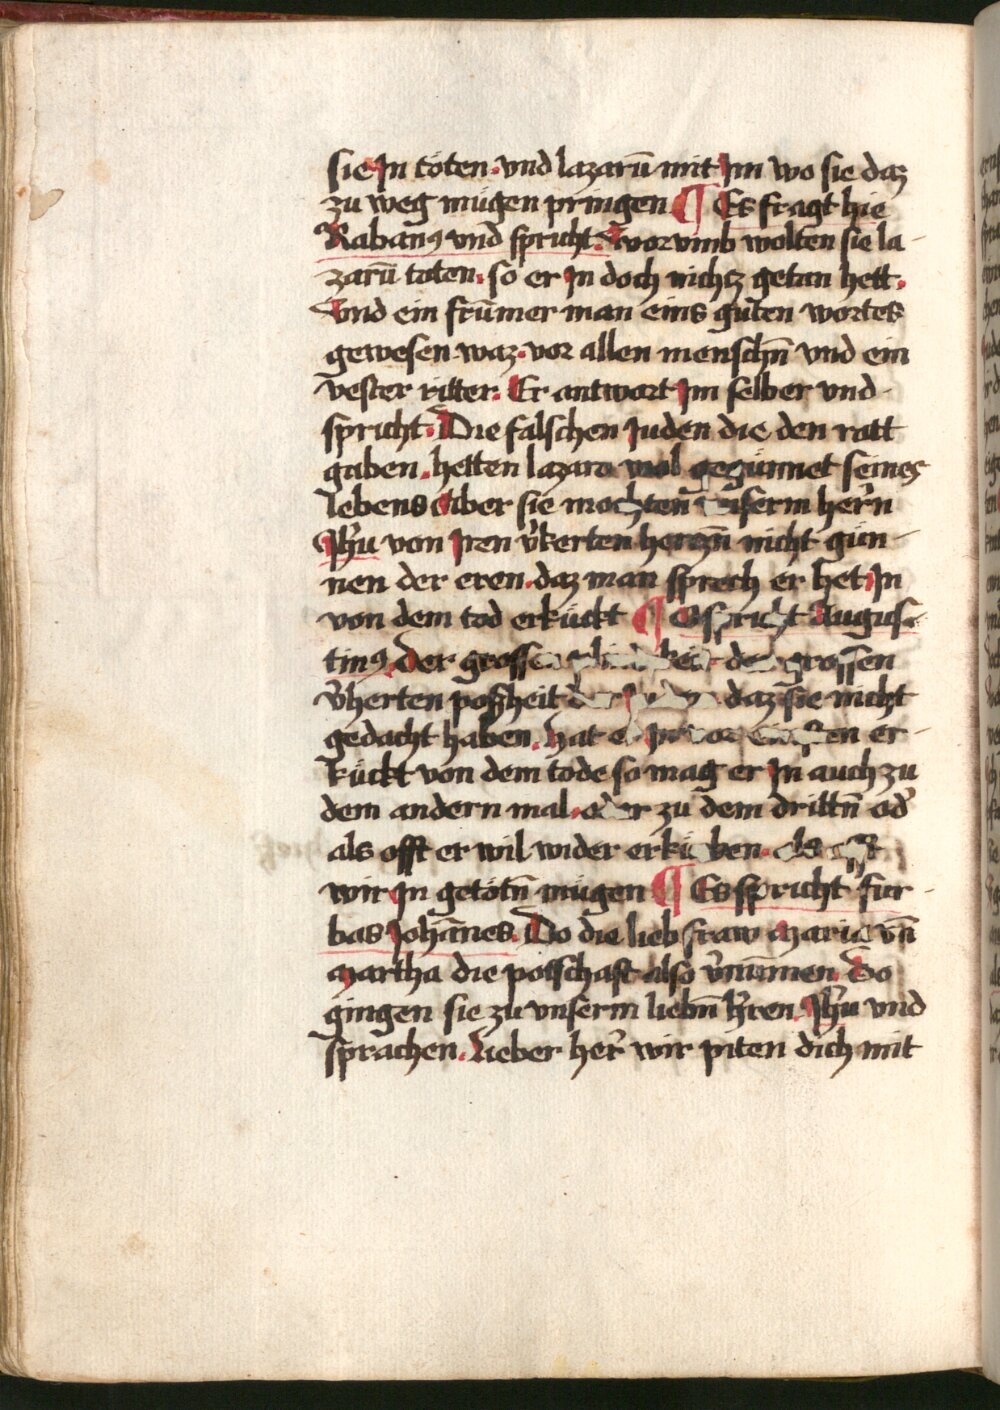 sie Jn töten · vnd lazarū mit Jm wo sie daz
zu weg mügen pringen ¶ Es fragt hie
Rabanꝰ vnd spricht · worvmb wolten sie la-
zarū toten · so er Jn doch nichcz getan hett ·
Vnd ein frūmer man eins gůten wortes
gewesen waz · vor allen menschn̄ vnd ein
vester ritter · Er antwort Jm selber vnd
spricht · Die falschen Juden die den ratt
gaben · hetten lazaro wol gegünnet seines
lebens Aber sie mochten vnserm her̄n
Jhū von Jren v̓kerten herczn̄ nicht gün-
nen der eren · daz man sprech er het Jn
von dem tod erkückt ¶ O spricht Augus-
tinꝰ der grossen grossen
v̓herten poszheit daz sie nicht
gedacht haben · Hat er Jn en er-
kückt von dem tode so mag er Jn auch zu
dem andern mal · oder zu dem drittn̄ od̓
als offt er wil wider erkü ben · als offt
wir Jn getötn̄ mügen ¶ Es spricht fur-
bas Johānes · Do die lieb fraw Maria vn̄
Martha die potschaft also v̓nūmen · Do
gingen sie zu vnserm liebn̄ h̓ren · Jhū vnd
sprachen · Lieber her̄ wir piten dich mit